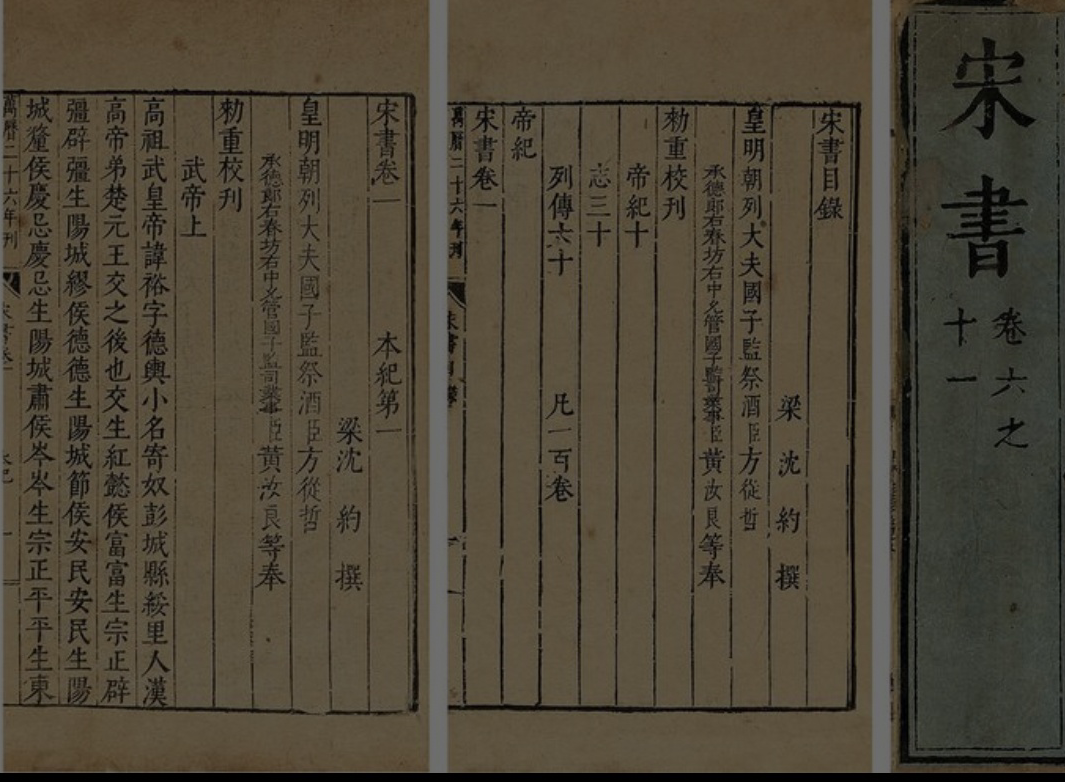 宋書
卷六之
十一
宋書目錄
梁沈約撰
皇明朝列大夫國子監祭酒臣方從哲
承德郎右春坊右中允管國子監司業事臣黃汝良等奉
勑重校刊
帝紀十
志三十
列傳六十 凡一百卷
帝紀
宋書卷一
萬曆二十六年刊
宋書目錄
宋書卷一 本紀第一
梁沈約撰
皇明朝列大夫國子監祭酒臣方從哲
承德郎右春坊右中允管國子監司業事臣黃汝良等奉
勑重校刊
武帝上
高祖武皇帝諱裕字德輿小名寄奴彭城縣綏里人漢
高帝弟楚元王交之後也交生紅懿侯富富生宗正辟
彊辟彊生陽城繆侯德德生陽城節侯安民安民生陽
城釐侯慶忌慶忌生陽城肅侯岑岑生宗正平平生東
萬曆二十六年刊
宋書卷一